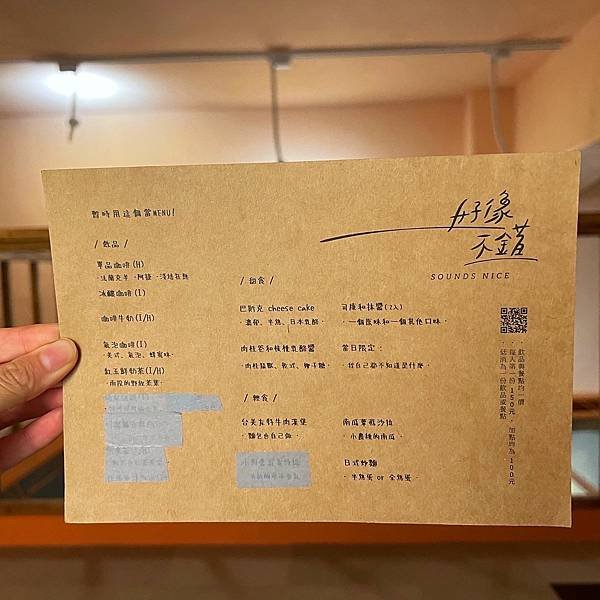 暫時用這個當MENU!
好像
不錯
SOUNDS NICE
/ 飲品 /
單品咖啡(H)
冰釀咖啡(I)
咖啡牛奶(I/H)
氣泡咖啡(I)
·美式、氣泡、蜂蜜味·
紅玉鮮奶茶(I/H)
·南投的野放茶葉·
/ 甜食 /
巴斯克 cheese cake
·濃郁、半熟、日本乳酪·
肉桂卷和核桃乳酪醬
司康和抹醬(2入)
·一個原味和一個其他口味·
當日限定:
·我自己都不知道是什麼·
/ 輕食 /
台美友好牛肉漢堡
·麵包也自己做·
南瓜薯蛋沙拉
·小農種的南瓜·
日式炒麵
·半熟蛋 or 全熟蛋·
·飲品與餐點均一價
每人第一份150元,加點均為100元
·低消為一份飲品或餐點·